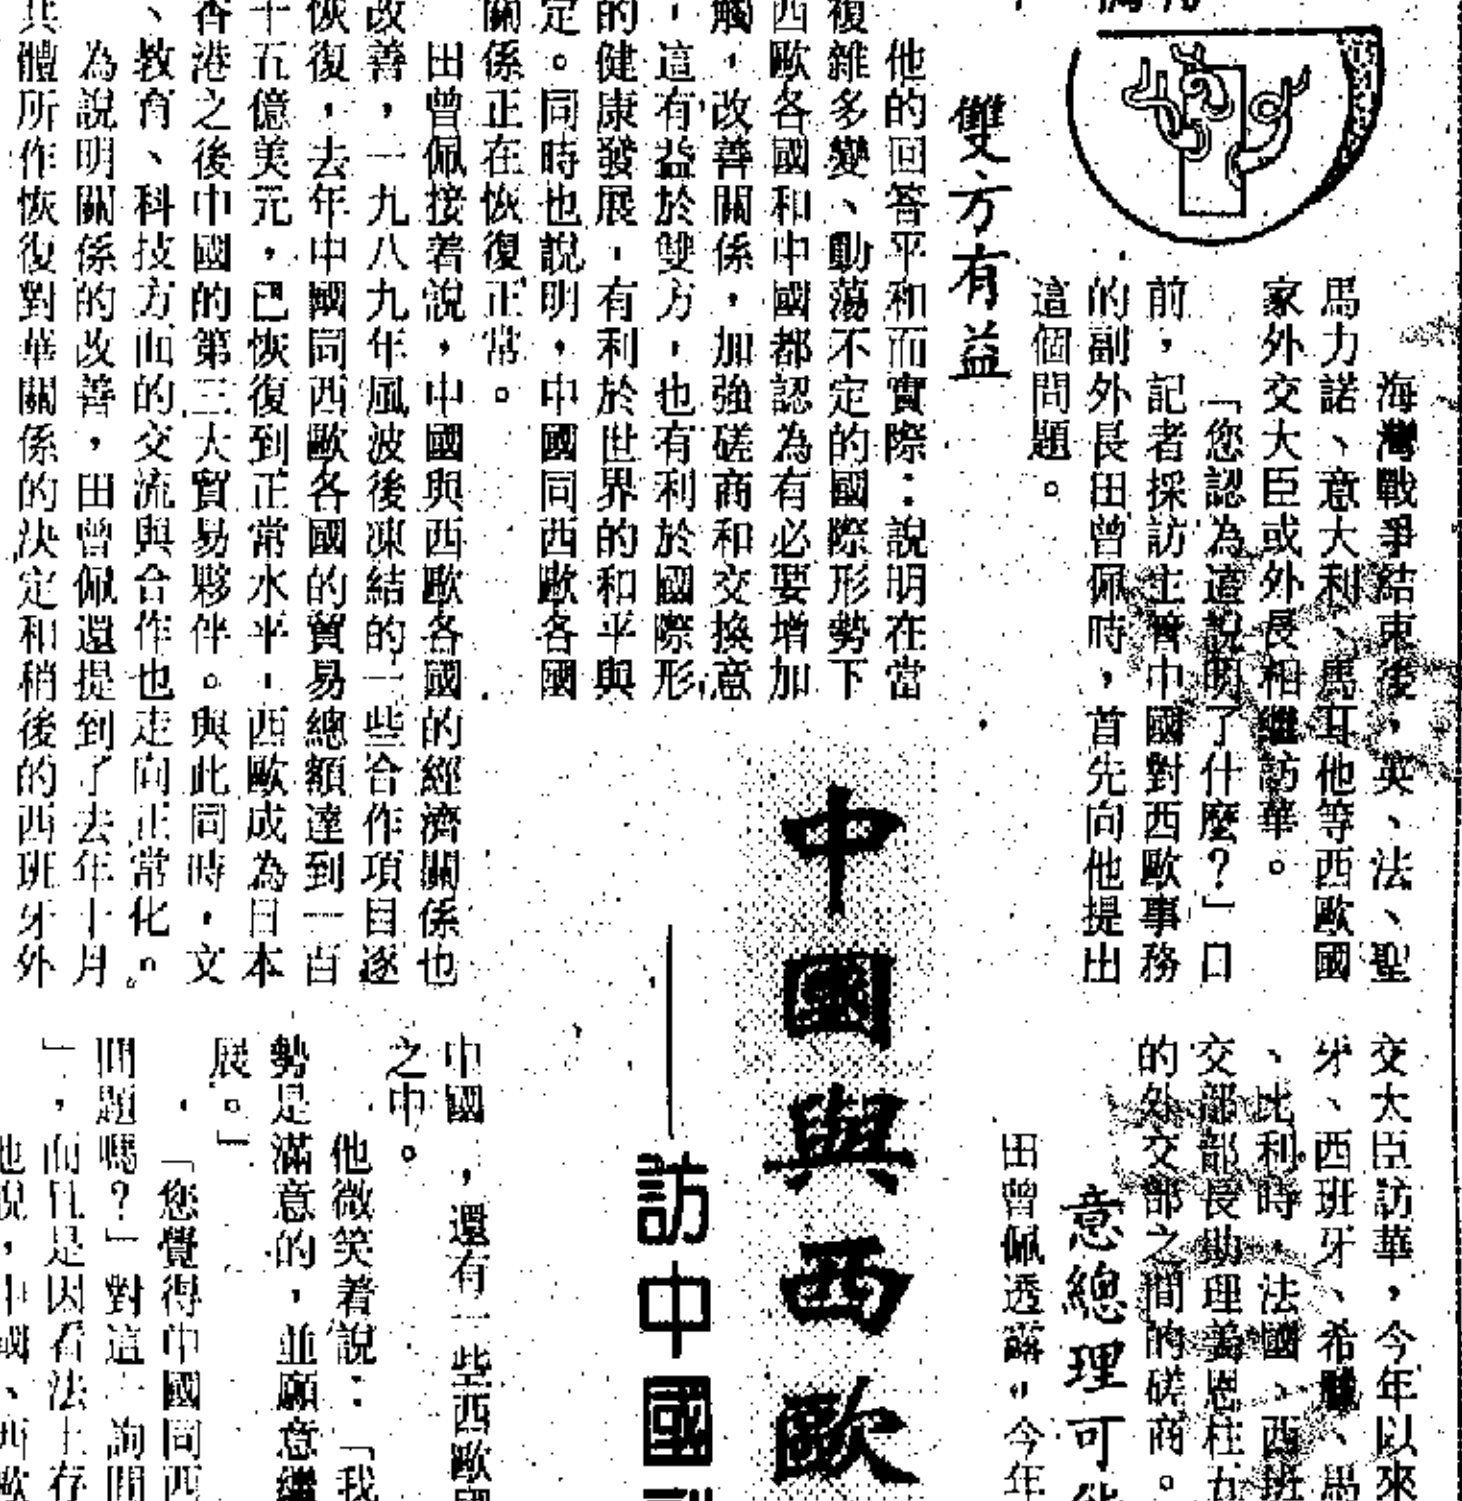 海灣戰爭結束後,英、法、聖
馬力諾、意大利、馬耳他等西歐國
家外交大臣或外長相繼訪華。
「您認為這說明了什麼?」口
前,記者採訪主管中國對西歐事務
的副外長田曾佩時,首先向他提出
這個問題。
雙方有益
他的回答平和而實際:說明在當
複雜多變、動蕩不定的國際形勢下
西歐各國和中國都認為有必要增加
觸,改善關係,加強磋商和交換意
,這有益於雙方,也有利於國際形
的健康發展,有利於世界的和平與
定。同時也說明,中國同西歐各國
關係正在恢復正常。
田曾佩接着說,中國與西歐各國的經濟關係也
改善,一九八九年風波後凍結的一些合作項目逐
恢復,去年中國同西歐各國的貿易總額達到一百
十五億美元,已恢復到正常水平,西歐成為日本
香港之後中國的第三大貿易夥伴。與此同時,文
、教育、科技方面的交流與合作也走向正常化。
為說明關係的改善,田曾佩還提到了去年十月
體所作恢復對華關係的決定和稍後的西班牙外
交大臣訪華,今年以來
牙、西班牙、希臘、馬
、比利時,法國、西班
交部部長助理姜恩柱五
的外交部之間的磋商。
意總理可
田曾佩透露,今年
中國與西歐
——訪中國
中國,還有一些西歐國
之中。
他微笑着說:「我
勢是滿意的,並願意繼
展。」
「您覺得中國同西
問題嗎?」對這一詢問
」,而且是因看法上存
他說,中國、西歐